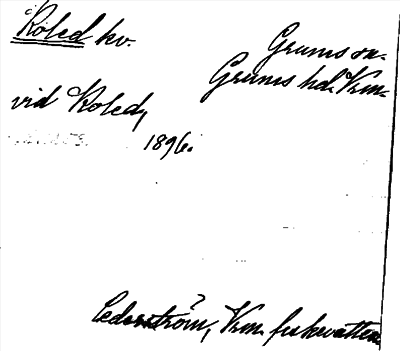 Koled kv.
Grums sn.
Grums hd. Vrm.
vid Koled,
1896.
Cederström, Vrm. fiskevatten